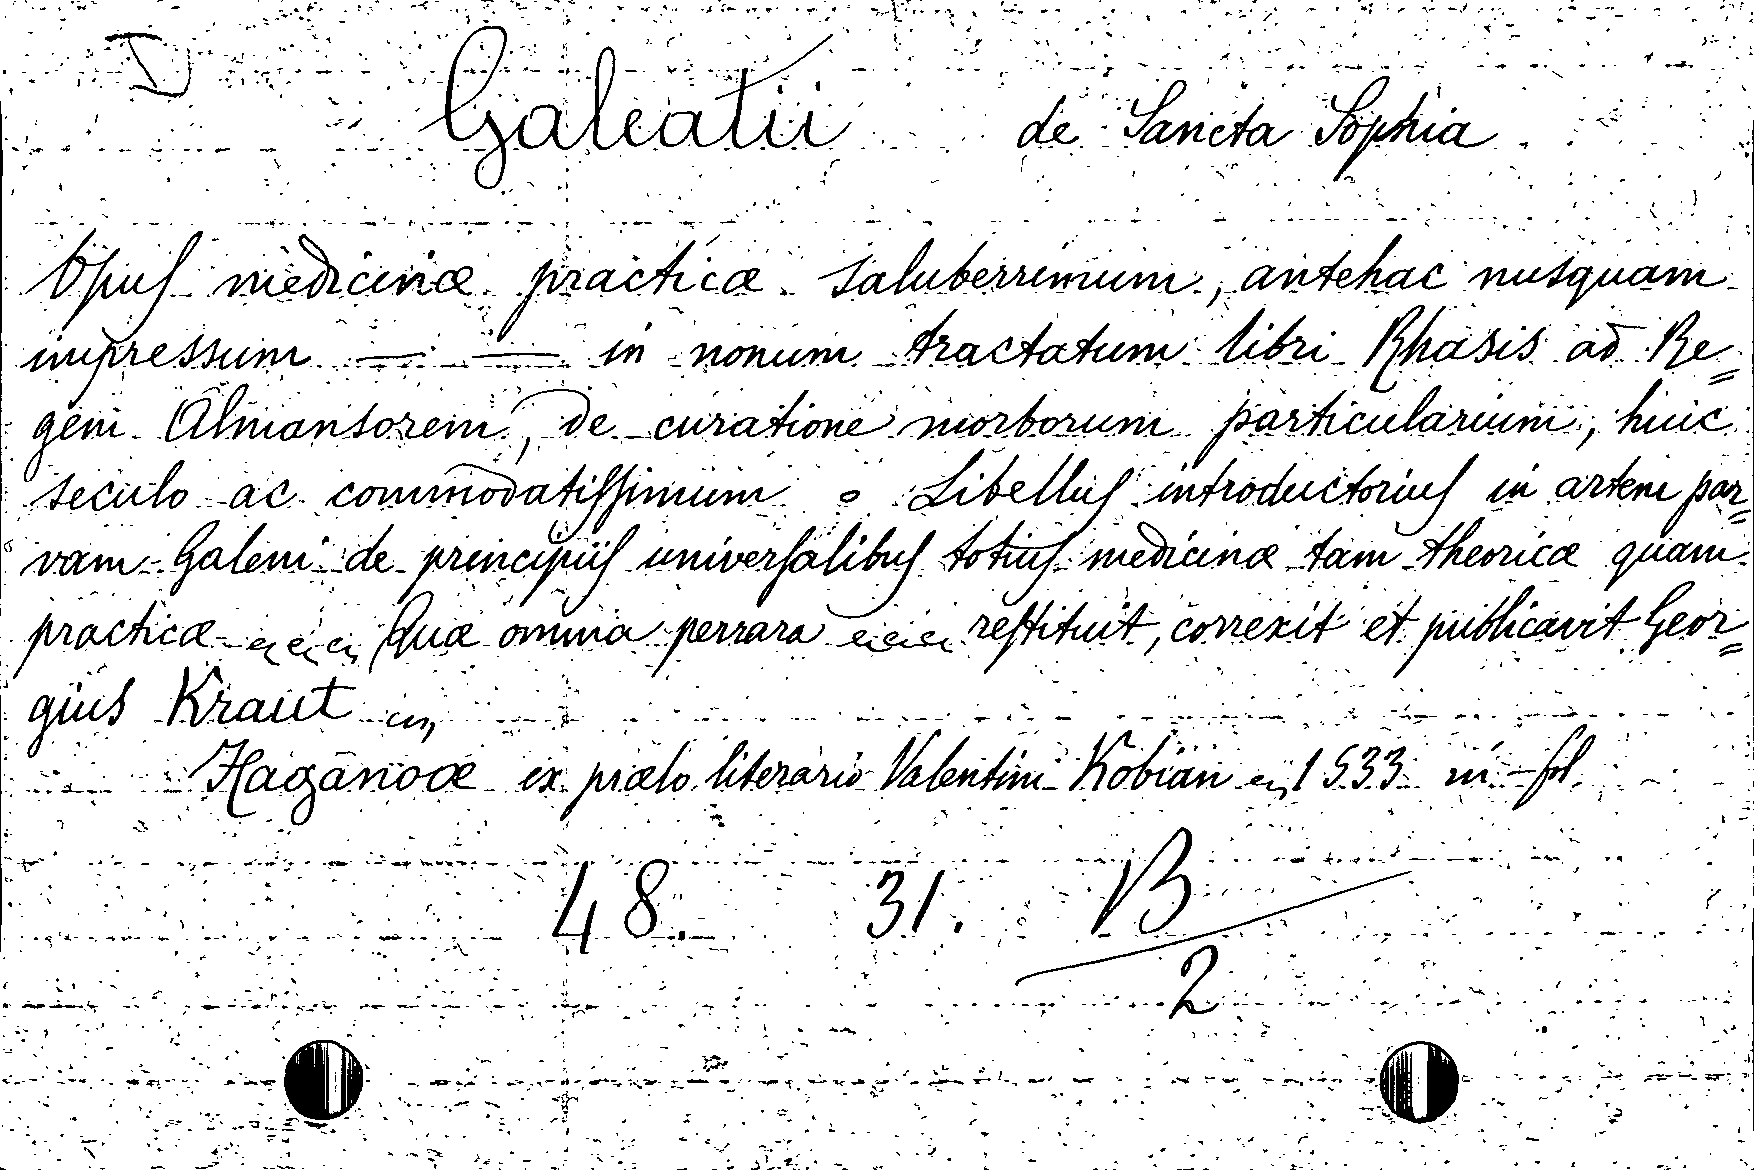 D Galeatii de Sancta Sophia
Opuſ medicinæ practicæ saluberrimum, antehac nusquam
impressum — — in nonum tractatum libri Rhasis ad Re=
gem Almansorem, de curatione morborum particularium, huic
seculo ac commodatiſſimum . Libelluſ introductoriuſ in artem par=
vam Galeni de principiiſ univerſalibuſ totiuſ medicinæ tam theoricæ quam
practicæ Quæ omnia perrara reſtituit, correxit et publicavit Geor=
gius Kraut
Haganoæ ex prælo literario Valentini Kobian 1533 in-fol.
48. 31. B
2